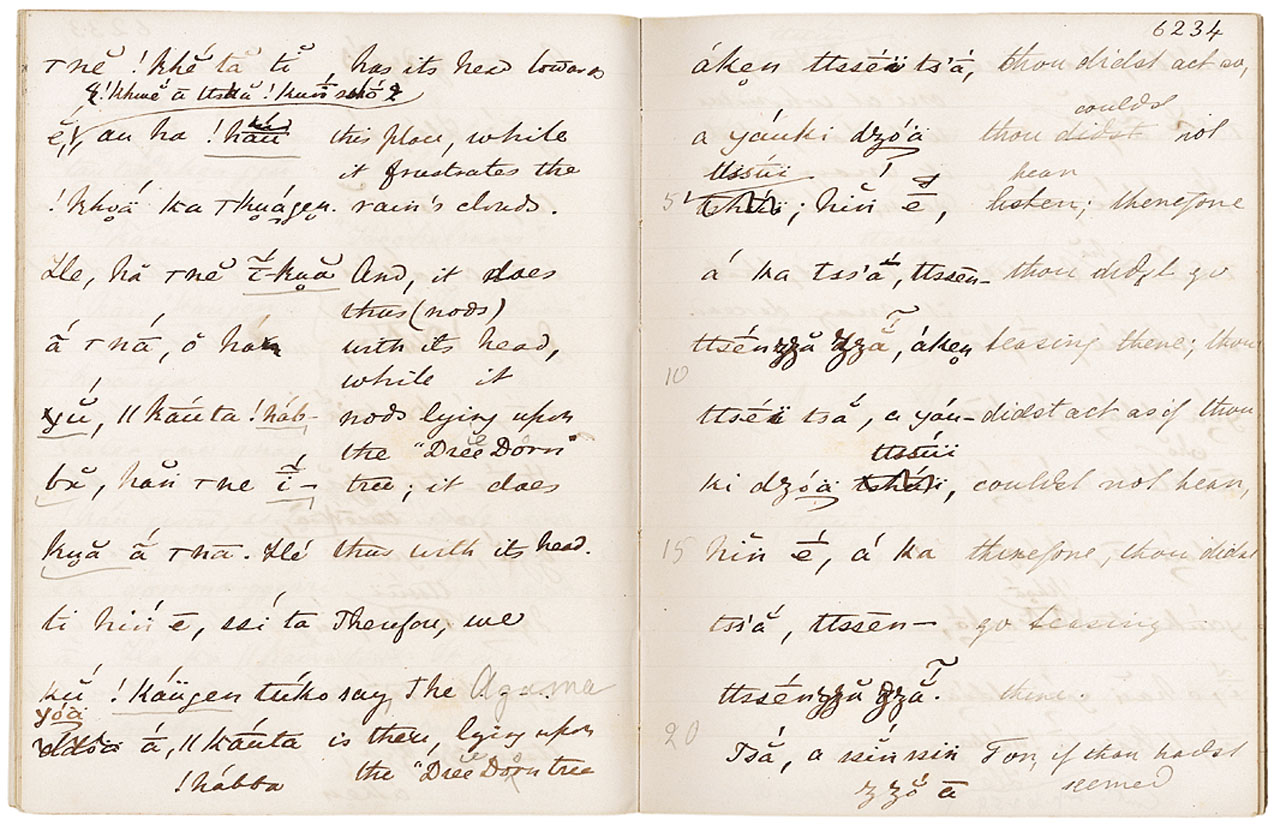 ꞇnĕ !khĕ́ tă tĭ has its head towards
!khwĕ ā ttskŭ !kuĭŋ
ĕ́, au ha !hăn this place, while
it frustrates the
!khoä ka ꞇkuágen. rain's clouds.
He, hă ꞇnĕ ī-kuă And, it does
thus (nods)
á ꞇnā́, ŏ han with its head,
while it
yŭ, ǁkāuta !háb- nods lying upon
the "Drĕĕ Dŏrn"
bă, hăn ꞇne ī- tree; it does
kuă ā́ ꞇnā. Hé thus with its head.
ti hiń ē, ssí ta Therefore, we
kŭ !káügen túko say, The Agama
yóä
á, ǁkāuta is there, lying upon
!hábba the "Dree Dŏrn tree
6234
áken ttssĕ́ïï ts'ā́, thou didst act so,
couldst
a yáuki dzóä thou didst not
ttssúïï hear
5 ; hiń ē, listen; therefore
á ka tss'ā́, ttssēn- thou didst go
ttsénzzŭ zzā́, áken teasing there; thou
10
ttsĕ́ïï tsā́, a yáu- didst act as if thou
ttssúïï
ki dzóä, couldst not hear,
15 hiń ē, á ka therefore, thou didst
tss'ā́, ttssēn- go teasing
ttssénzzŭ zzā́. there.
20
Tsā́, a ssiń ssin For, if thou hadst
zzŏ́ ā seemed